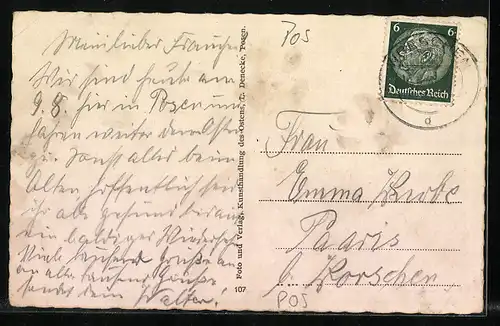 Mein lieber Frauchen
Wir sind heute am
9.8. hier in Posen und
fahren weiter dem Osten
zu. Sonst alles beim
Alten hoffentlich seid
ihr alle gesund
ein baldiges Wiedersehn
Viele tausend Grüße an
an alle tausend Grüße
sendet dein Walter.
Foto und Verlag, Kunsthandlung des Ostens, L. Denecke, Posen.
107
Pos
6 6
Deutsches Reich
a
Frau
Emma
Paaris
b. Korschen
POS